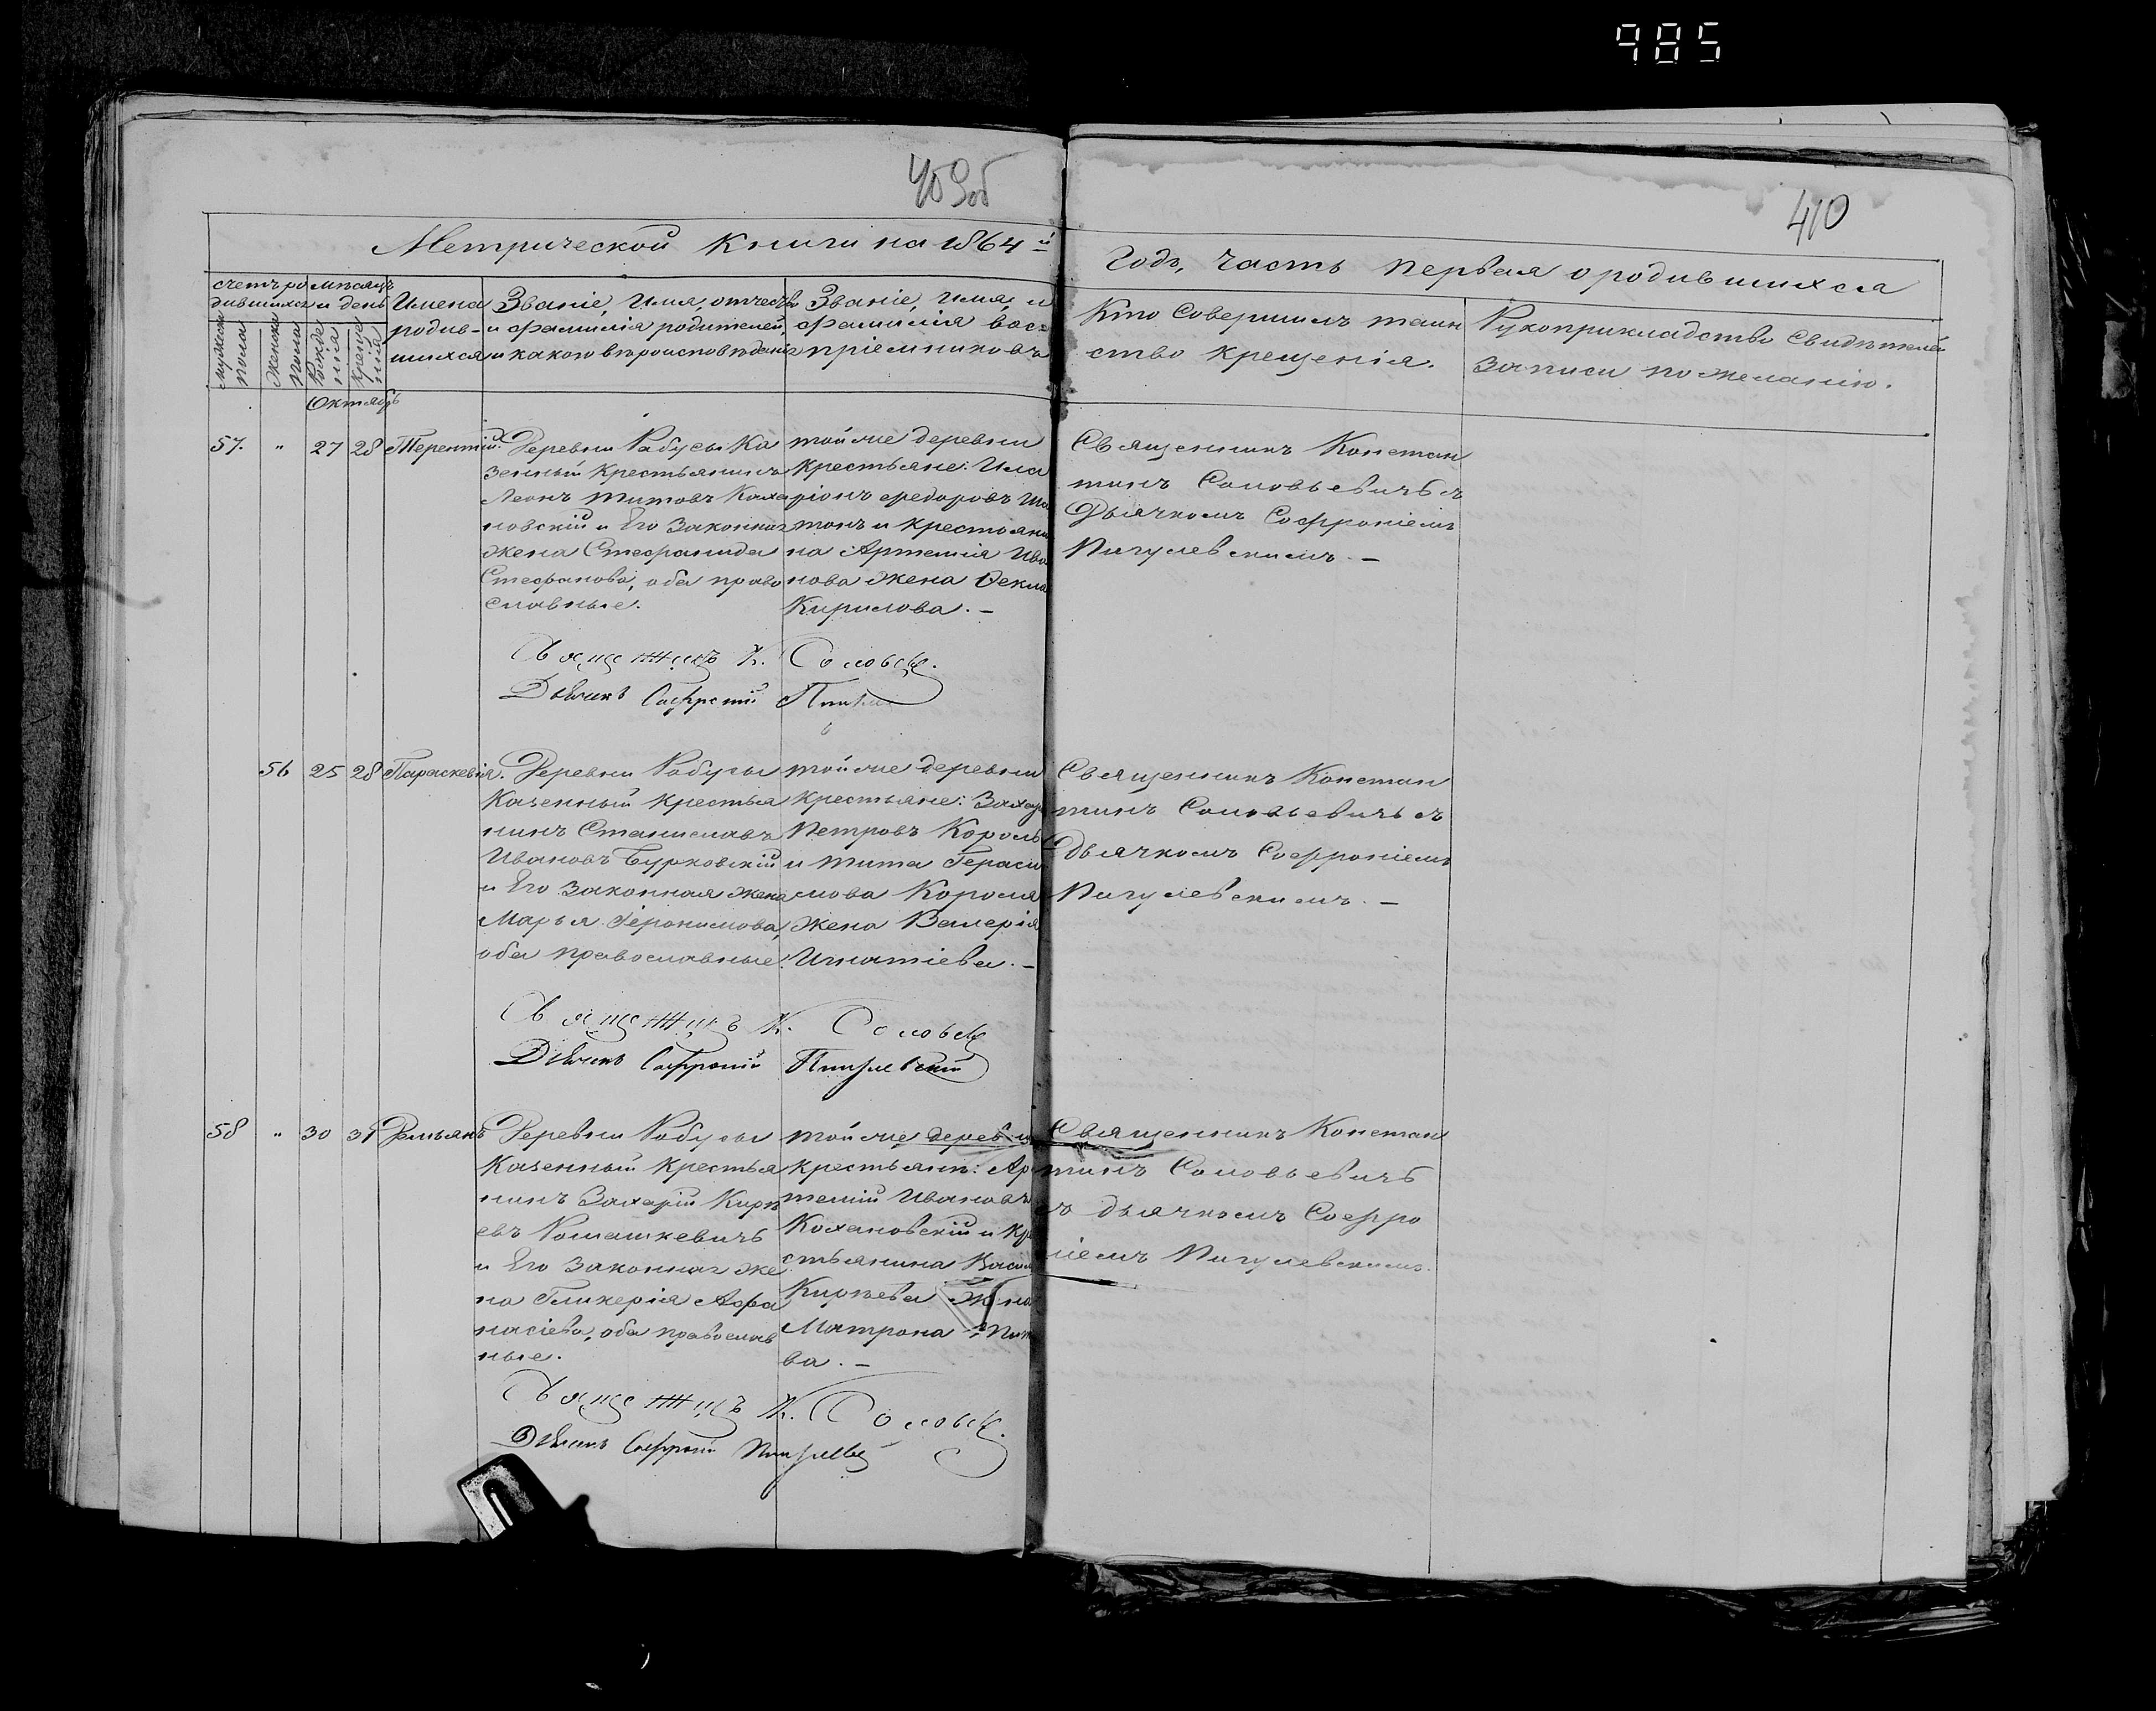 985
409об
410
Метрической Книги на 1864й
Годъ, часть первая о родившихся
Счетъ родившихся
Мужеска пола
Женска пола
Мѣсяцъ и день
Рожденія
Крещенія
Имена родившихся
Званіе, Имя, отчество
и фамилія родителей,
и какого вѣроисповѣданія
Званіе, имя, и
фамилія восприемниковъ
Кто Совершилъ таин
ство крещенія.
Рукоприкладство Свидѣтелей
записи по желанію.
Октябрь
57. " 27 28 Терентій.
Деревни Рабусы Ка
зенный Крестьянинъ
Леонъ Титовъ Коха
новскій и Его Законная
жена Стефанида
Стефанова, оба право
славные.
той же деревни
Крестьяне: Ила
ріонъ Федоровъ
и крестьяни
на Артемія Ива
нова жена Фекла
Кирилова. –
Священникъ Констан
тинъ Соловьевичъ съ
Дьячкомъ Софроніемъ
Пигулевскимъ. –
Священникъ К. Соловьев
Дьячекъ Софроній
56 25 28 Параскевія.
Деревни Рабусы
Казенный крестья
нинъ Станиславъ
Ивановъ Бурковскій
и Его Законная жена
Марья Іеронимова,
оба православные.
той же деревни
Крестьяне: Захарій
Петровъ Король
и Тита Гераси
мова Короля
жена Валерія
Игнатіева. –
Священникъ Констан
тинъ Соловьевичъ съ
Дьячкомъ Софроніемъ
Пигулевскимъ. –
Священникъ К. Соловьев
Дьячекъ Софроній Пигулевскій
58 " 30 31 Дамьянъ
Деревни Рабусы
Казенный крестья
нинъ Захарій Кирѣ
евъ Ромашкевичъ
и Его Законная же
на Гликерія Афа
насіева, оба православ
ные.
той же деревни
крестьянъ: Ар
темій Ивановъ
Кохановскій и кре
стьянина Васил
Кирѣева жена
Матрона
ва. –
Священникъ Констан
тинъ Соловьевичъ
съ дьячкомъ Софро
ніемъ Пигулевскимъ.
Священникъ К. Соловьев
Дьячекъ Софроній Пигулевскій